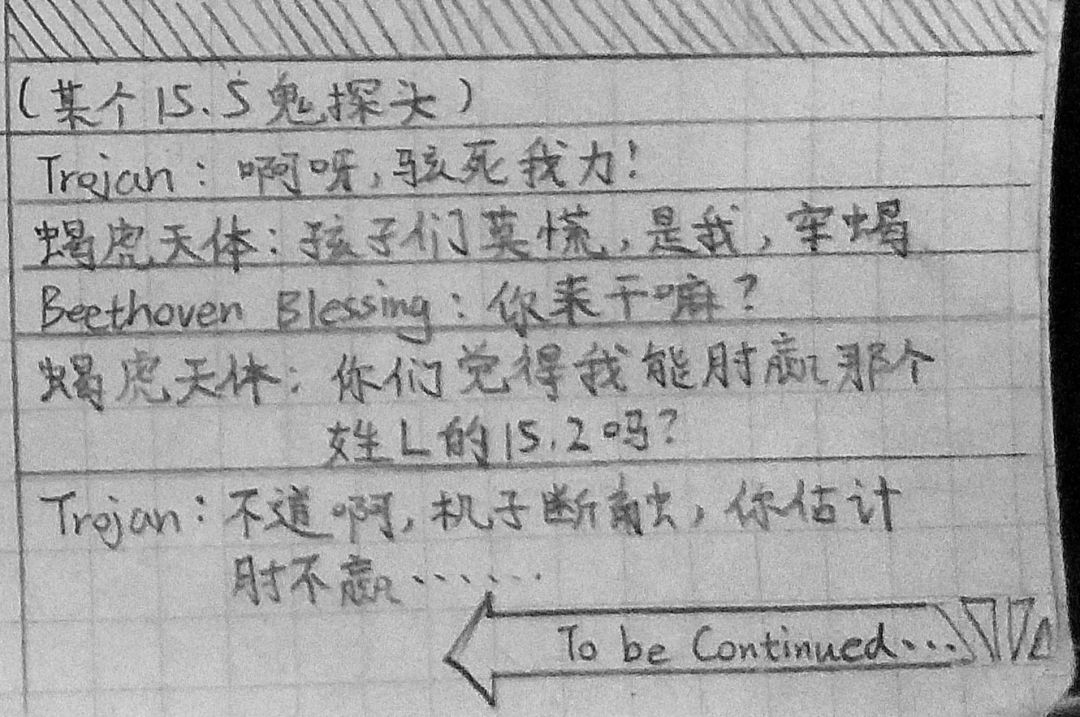 (某个15.5鬼探头)
Trojan：啊呀,骇死我力!
蝎虎天体：孩子们莫慌,是我,牢蝎
Beethoven Blessing：你来干嘛?
蝎虎天体：你们觉得我能肘赢那个
姓L的15.2吗?
Trojan：不道啊,机子断触,你估计
肘不赢……
To be Continued...